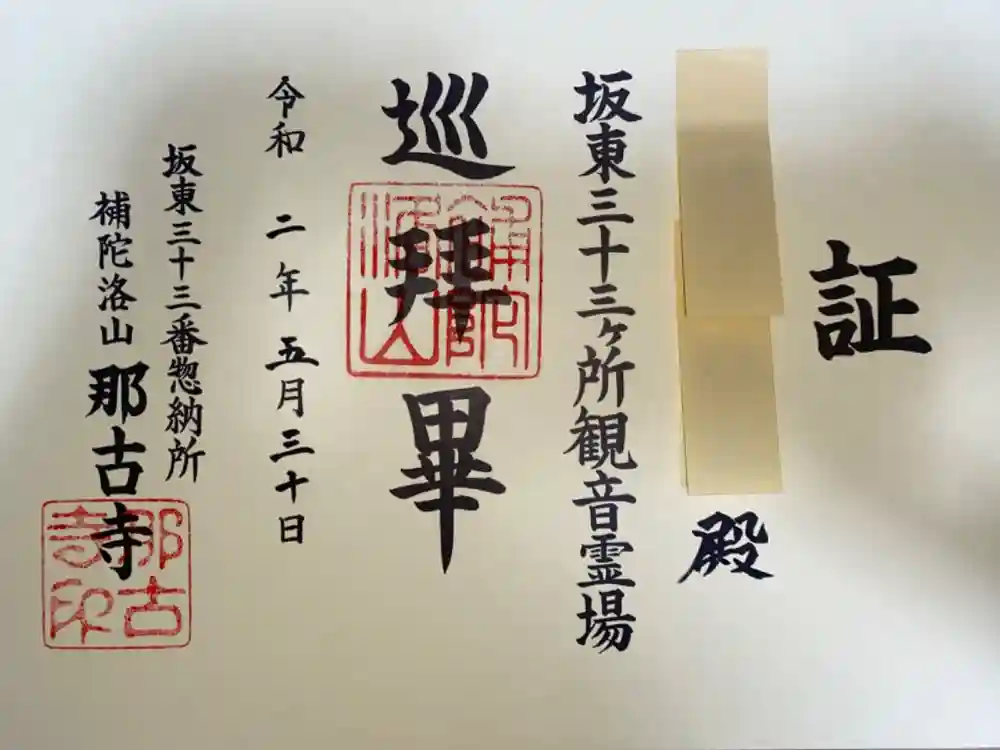 証
殿
坂東三十三ヶ所観音霊場
巡拝畢
補陀洛山
令和 二年 五月三十日
坂東三十三番惣納所
補陀洛山 那古寺
那古寺印